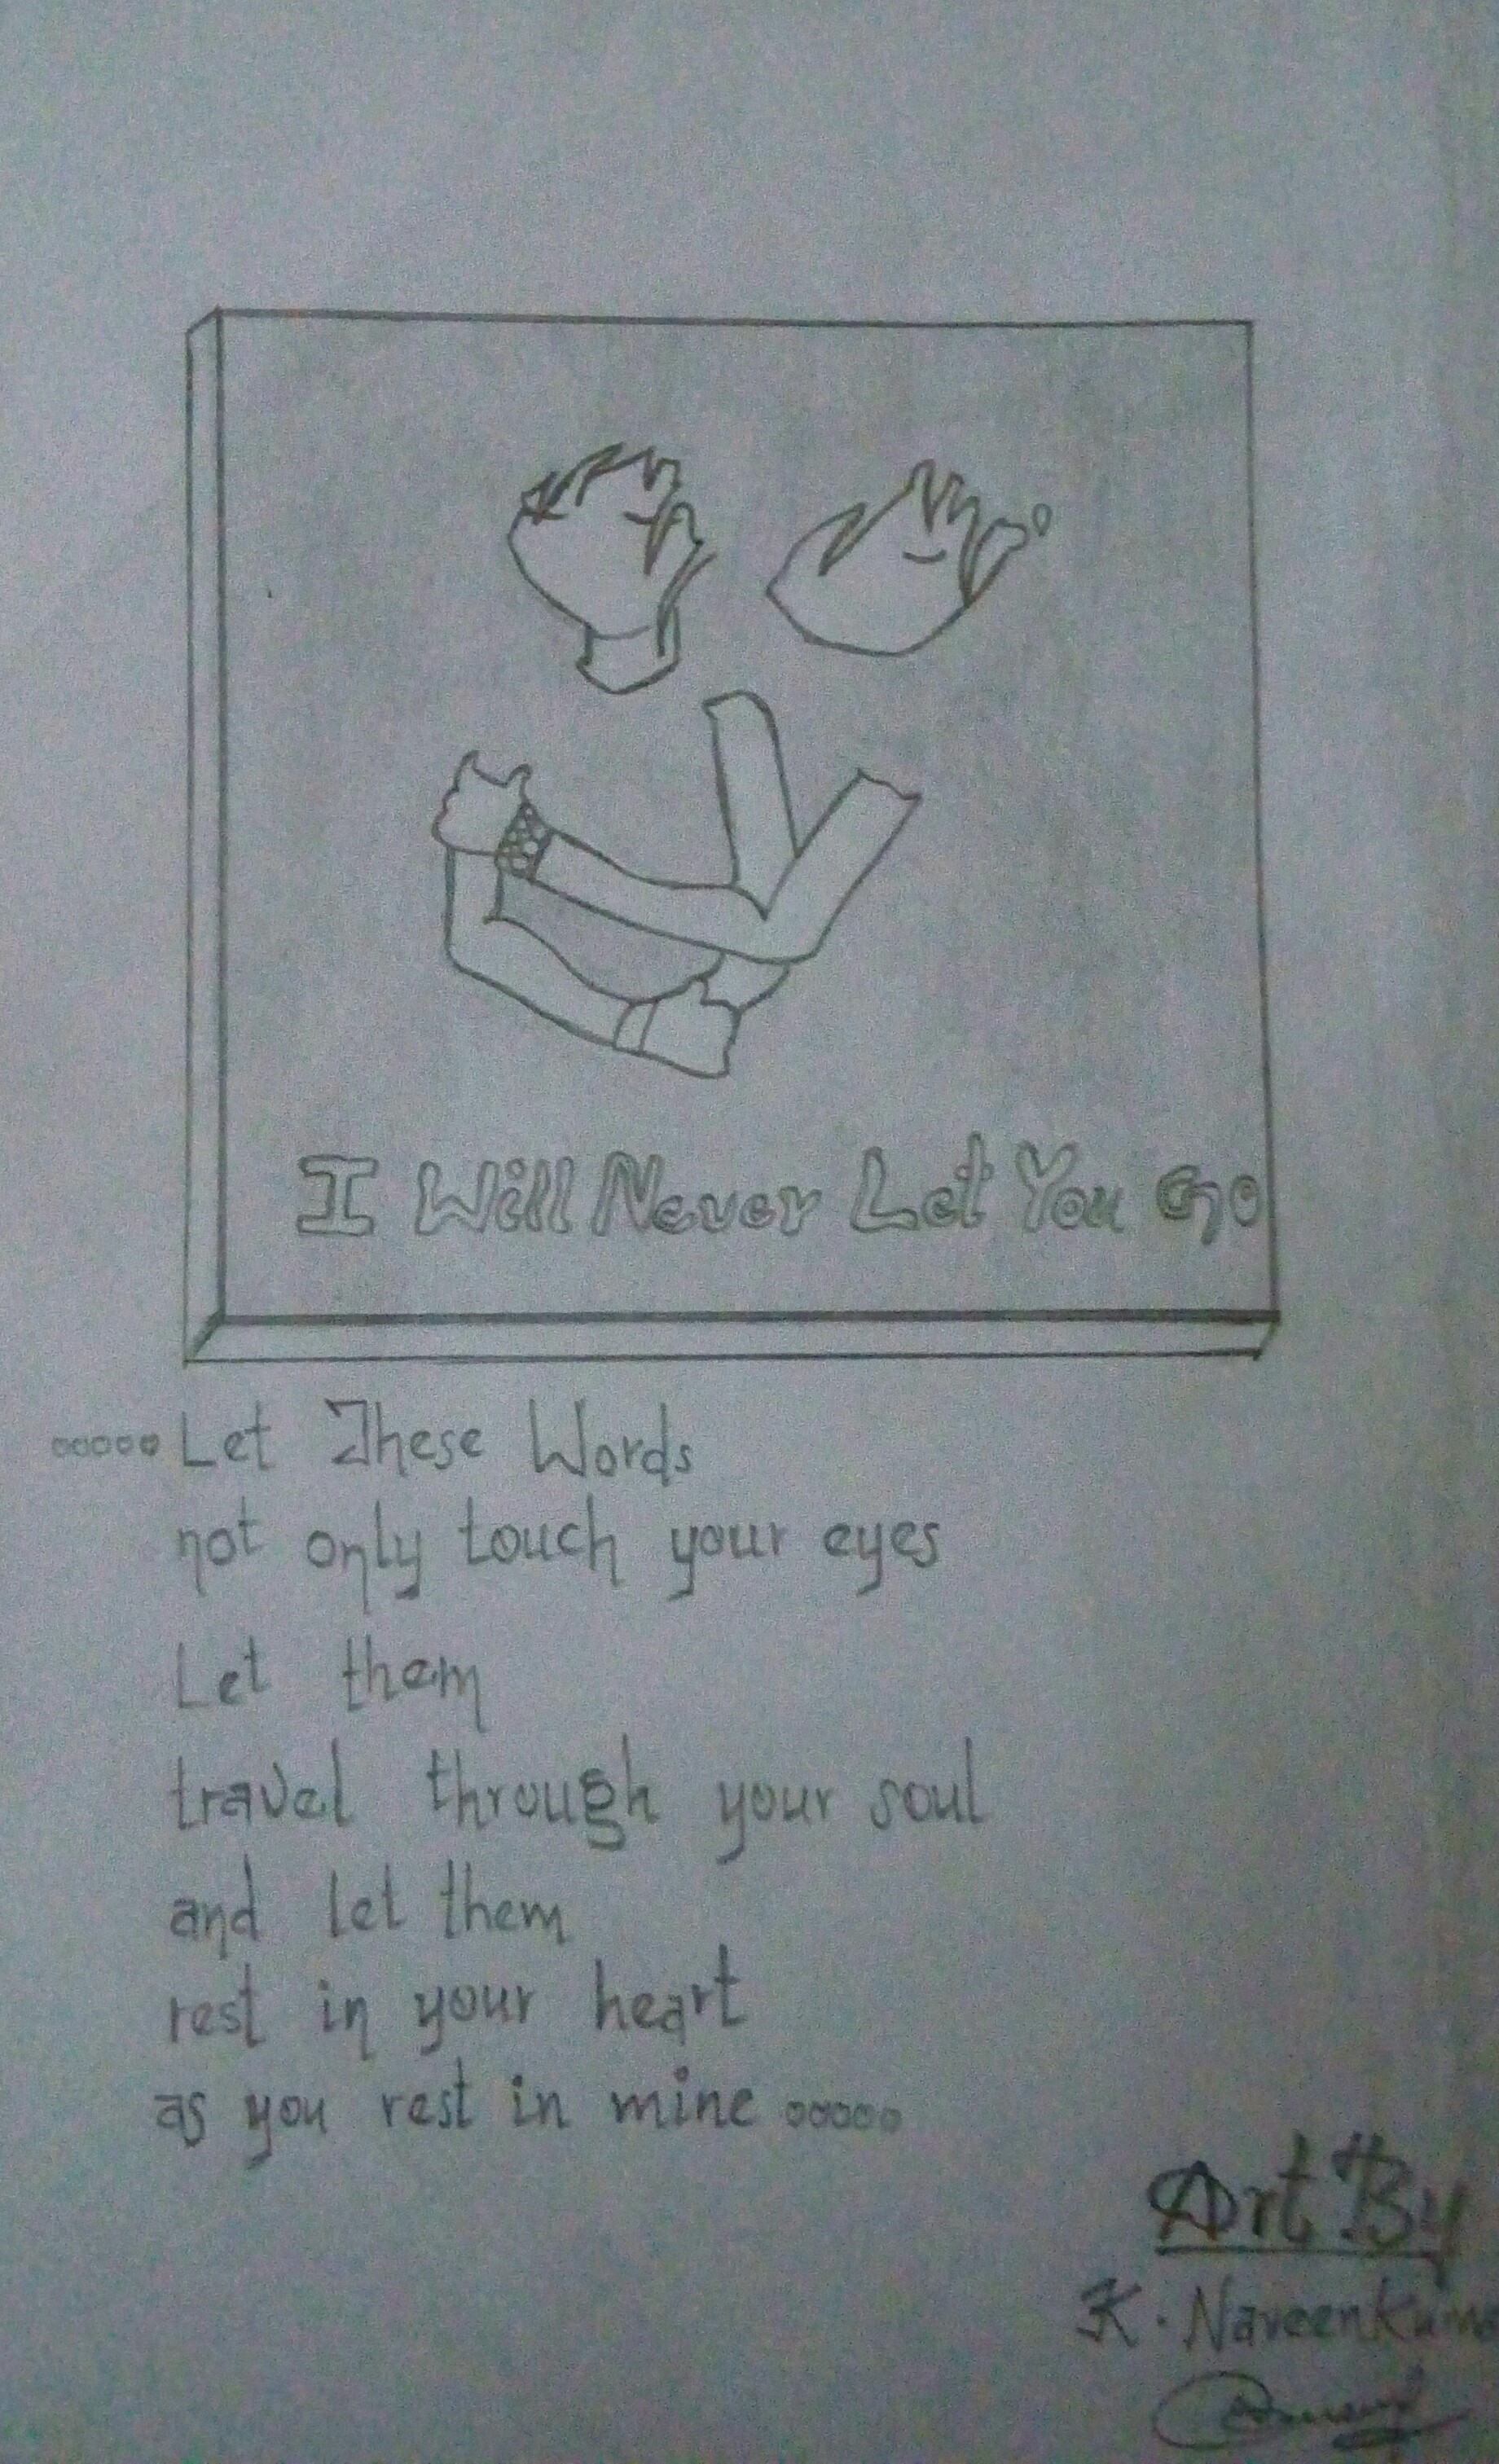 I Will Never Let You Go
ooooo Let These Words
not only touch your eyes
Let them
travel through your soul
and let them
rest in your heart
as you rest in mine ooooo
Art By
K. Naveenkuma